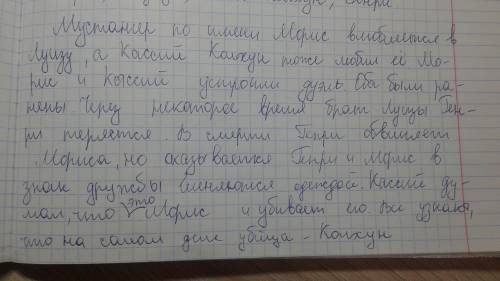 Колхун, Генри
Мустангер по имени Морис влюбляется в
Луизу, а Кассий Колхун тоже любил её Мо-
рис и Кассий устроили дуэль. Оба были ра-
нены Через некоторое время брат Луизы Ген-
ри теряется. В смерти Генри обвиняют
Мориса, но оказывается Генри и Морис в
знак дружбы меняются одеждой. Кассий ду-
мал, что это Морис и убивает его. Все узнают,
что на самом деле убийца - Колхун